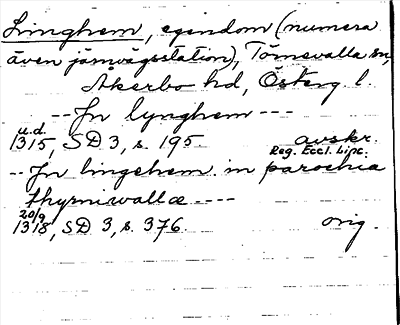 Linghem, egendom (numera
även järnvägsstation), Törnevalla sn,
Åkerbo hd, Österg. l.
-- Jn lynghem ---
u.d.
1315, SD 3, s. 195. avskr.
Reg. Eccl. Linc.
-- Jn lingehem in parochia
thyrniwallæ ----
20/9
1318, SD 3, s. 376. orig.